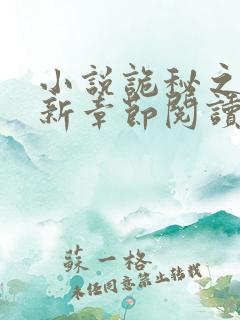 小說詭秘之
新章節閱讀
蘇一格
未經同意禁止轉載